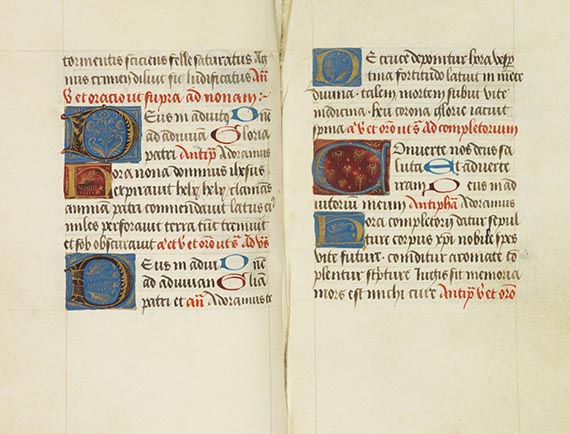 tormentis sciciens felle saturatus Ag
nus crimen diluit sic ludificatus Añ
v et oracio ut supra ad nonam :-
Deus in adiuto One
ad adiuvan Gloria
patri Antiph Adoramus
Hora nona dominus ihesus
expiravit hely hely clamans
animam patri commendavit latus ei'
miles perforavit terra tūc tremuit
et sol obscuravit a' et v et orõ ut s' Ad vs
Deus in adiu One
ad adiuvan Glia
patri et añ Adoramus te
De cruce deponitur hora vesp
tina fortitudo latuit in mete
divina . talem mortem subiit vite
medicina . heu corona glorie iacuit
spina a' v et orõ ut s' Ad completorium
Converte nos deus sa
luta Et adverte
iram Deus in ad
iutorium meum Antiphã Adoramus
Hora completorii datur sepul
ture corpus xpi nobile spes
vite future . conditur aromate cō
plentur scripture Iugis sit memoria
mors est michi cure Antip v et orõ